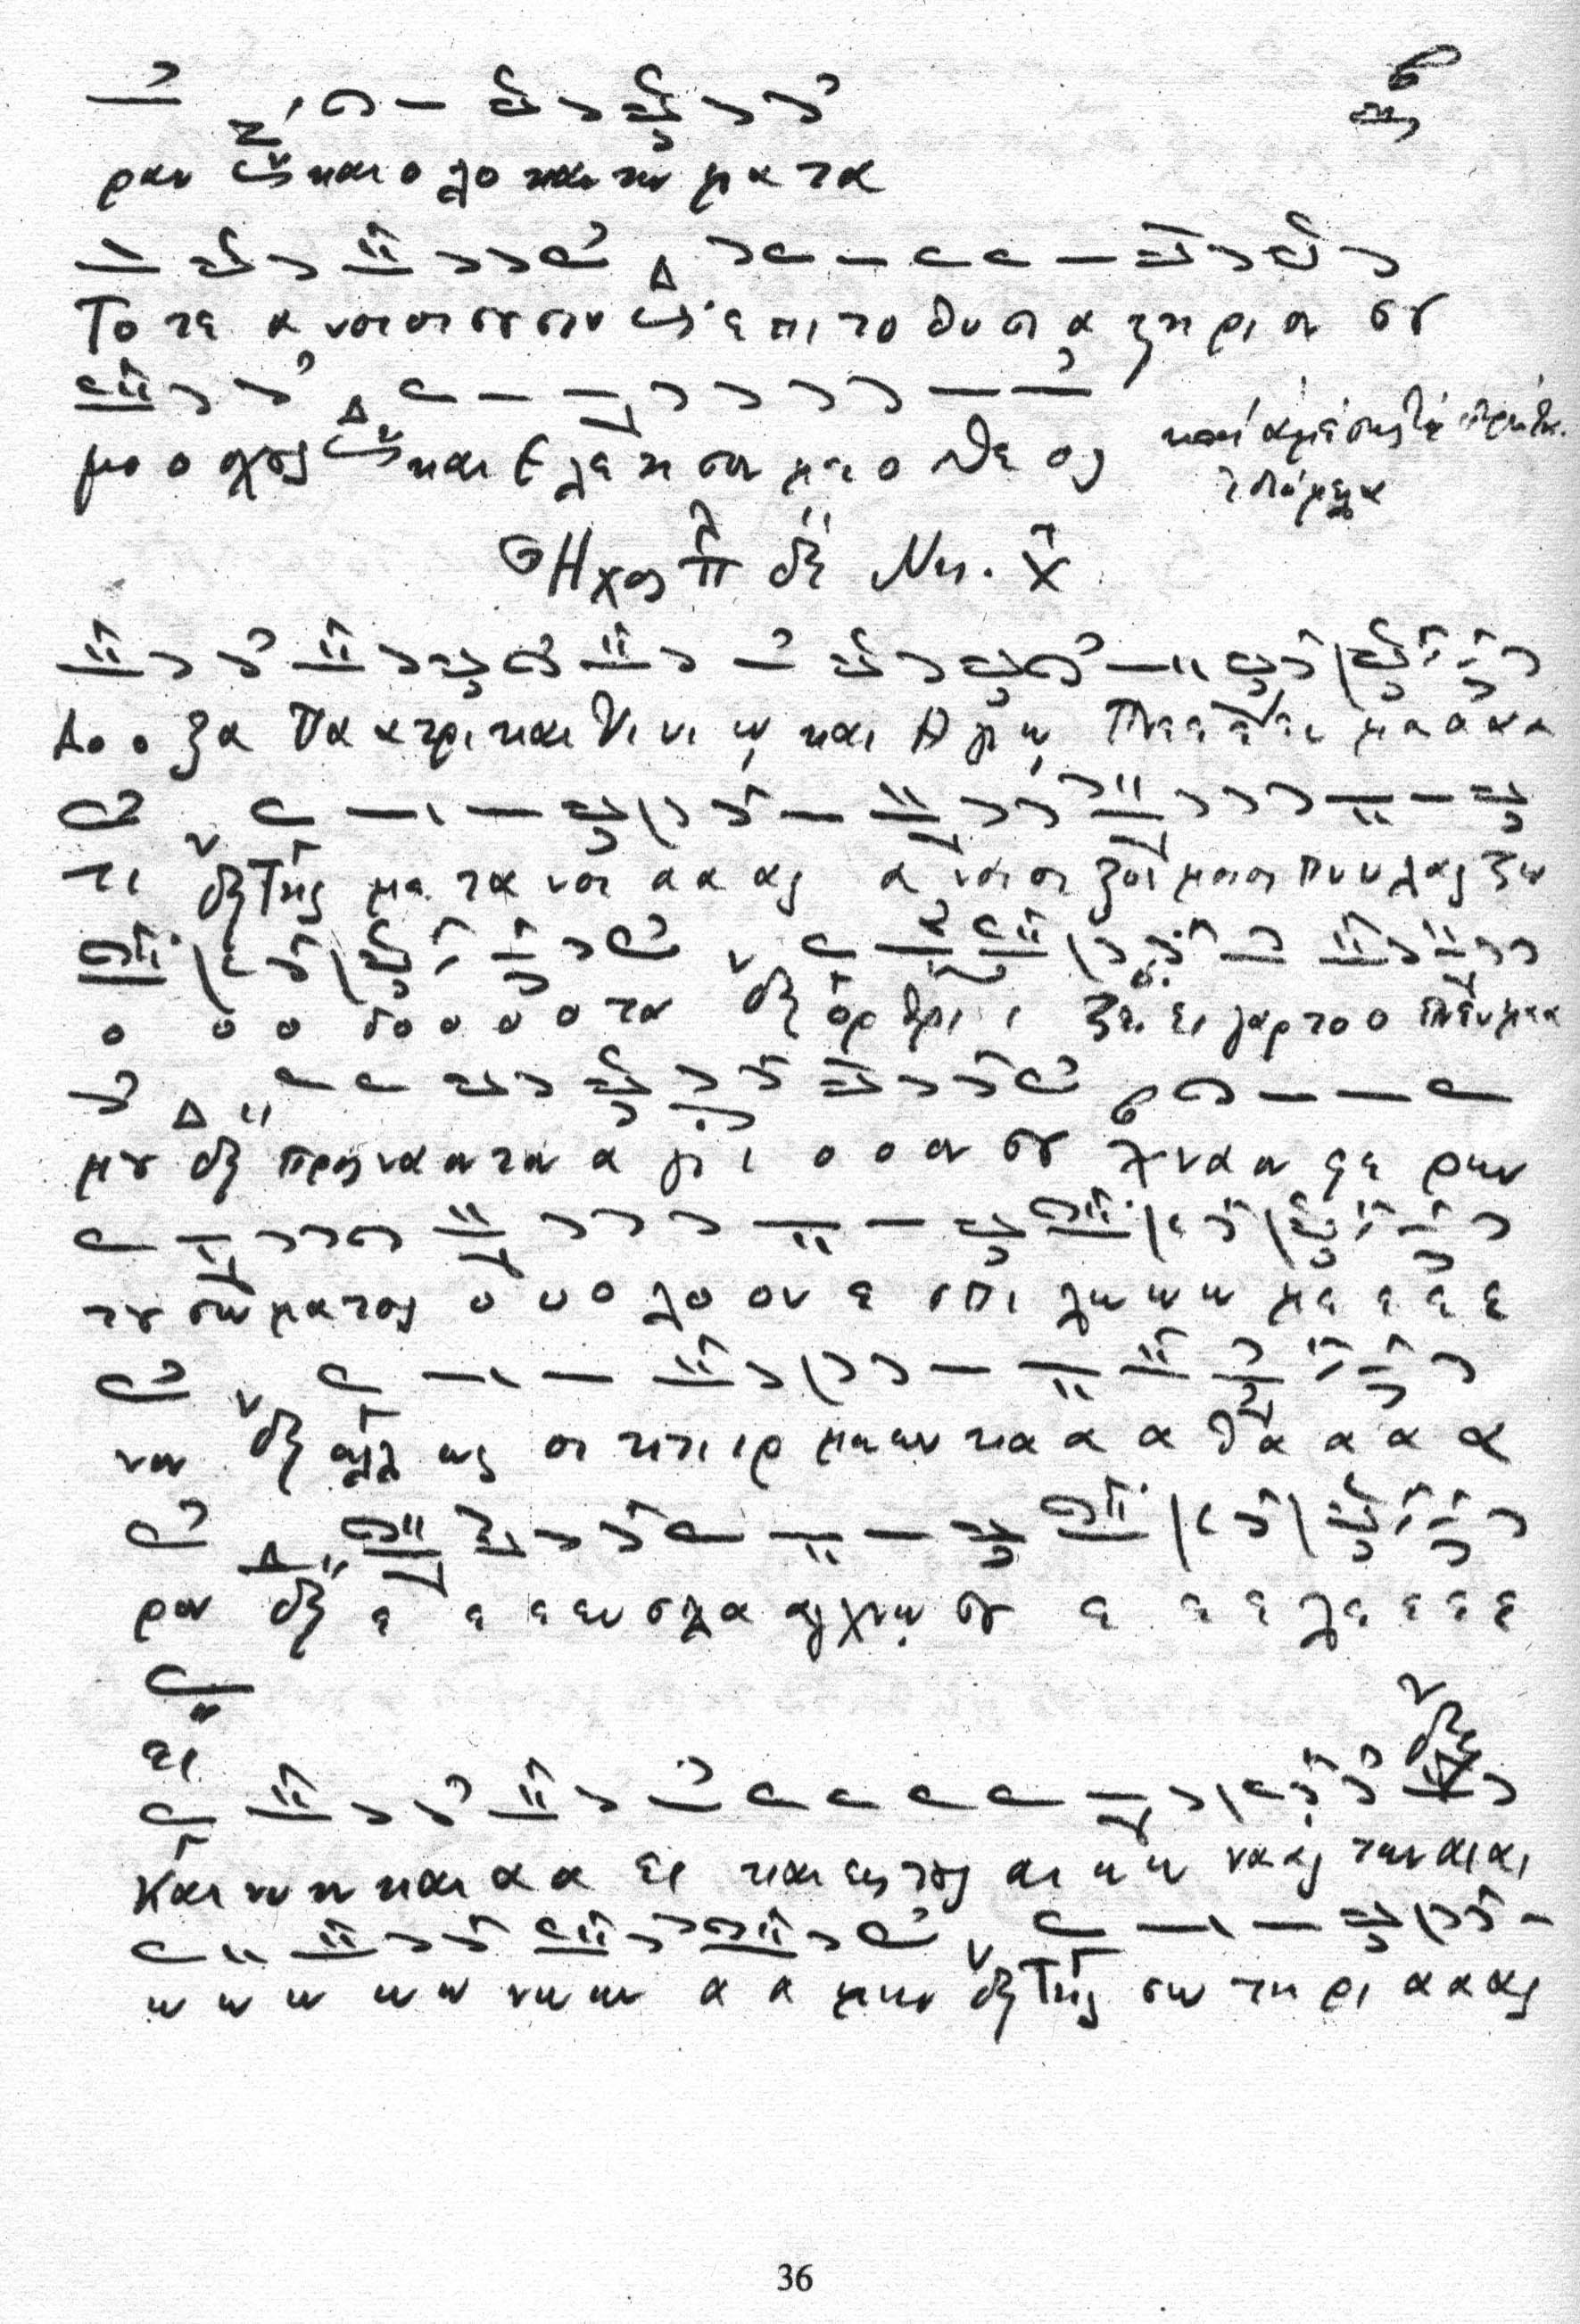 ραν και ο λο καυτω μα τα
Το τε α νοι οι σου σιν ε πι το θυ σι α στη ρι ον σου
μο ο σχους και Ε λε η σον με ο Θε ος και αμέσως τα
Ήχος πλ δ Νη
Δο ο ξα Πα α τρι και Υι υι ω και Α γι ω Πνε ε ε ευ μα α α α
τι Της με τα νοι α α ας α νοι οι ξον μοι οι πυ υ λας ζω
ο ο ο δο ο ο ο τα ορ θρι ι ζει ει γαρ το ο πνευ μα α
μου προς να ον τον α γι ι ο ο ον σου να ον φε ρων
του σω μα τος ο ο ο λο ον ε σπι λω ω ω με ε ε ε
νον αλλ ως οι κτι ιρ μω ων κα α α α θα α α α
ρον ε ε ε ευ σπλα αγ χνω σου ε ε ε λε ε ε ε
ει
Και νυ υν και α α ει και εις τους αι ω ω να ας των αι αι
ω ω ω ω ω νω ων α α μην Της σω τη ρι α α ας
36